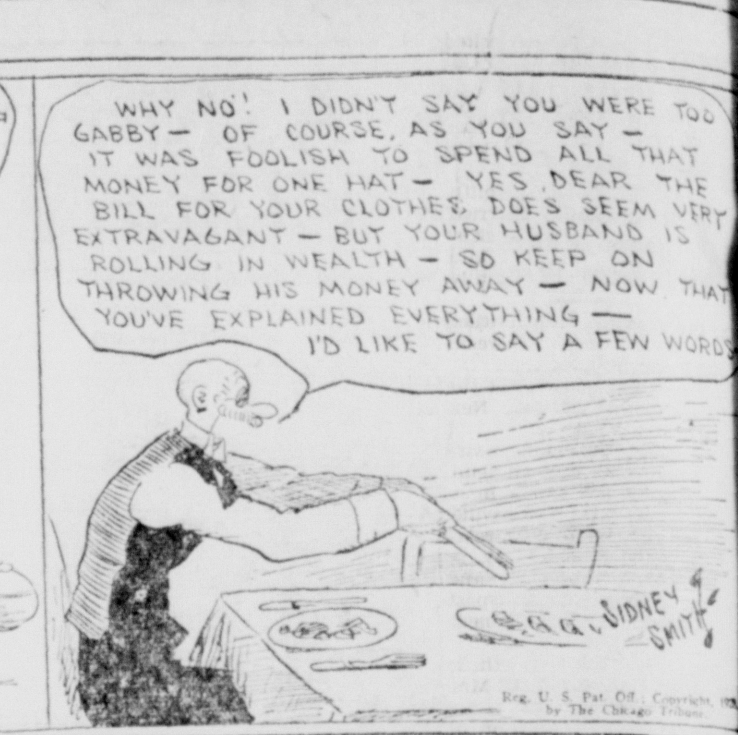 WHY NO! I DIDN'T SAY YOU WERE TOO
GABBY — OF COURSE, AS YOU SAY —
IT WAS FOOLISH TO SPEND ALL THAT
MONEY FOR ONE HAT — YES, DEAR THE
BILL FOR YOUR CLOTHES DOES SEEM VERY
EXTRAVAGANT — BUT YOUR HUSBAND IS
ROLLING IN WEALTH — SO KEEP ON
THROWING HIS MONEY AWAY — NOW THAT
YOU'VE EXPLAINED EVERYTHING —
I'D LIKE TO SAY A FEW WORDS
SIDNEY
SMITH
Reg. U. S. Pat. Off.; Copyright,
by The Chicago Tribune